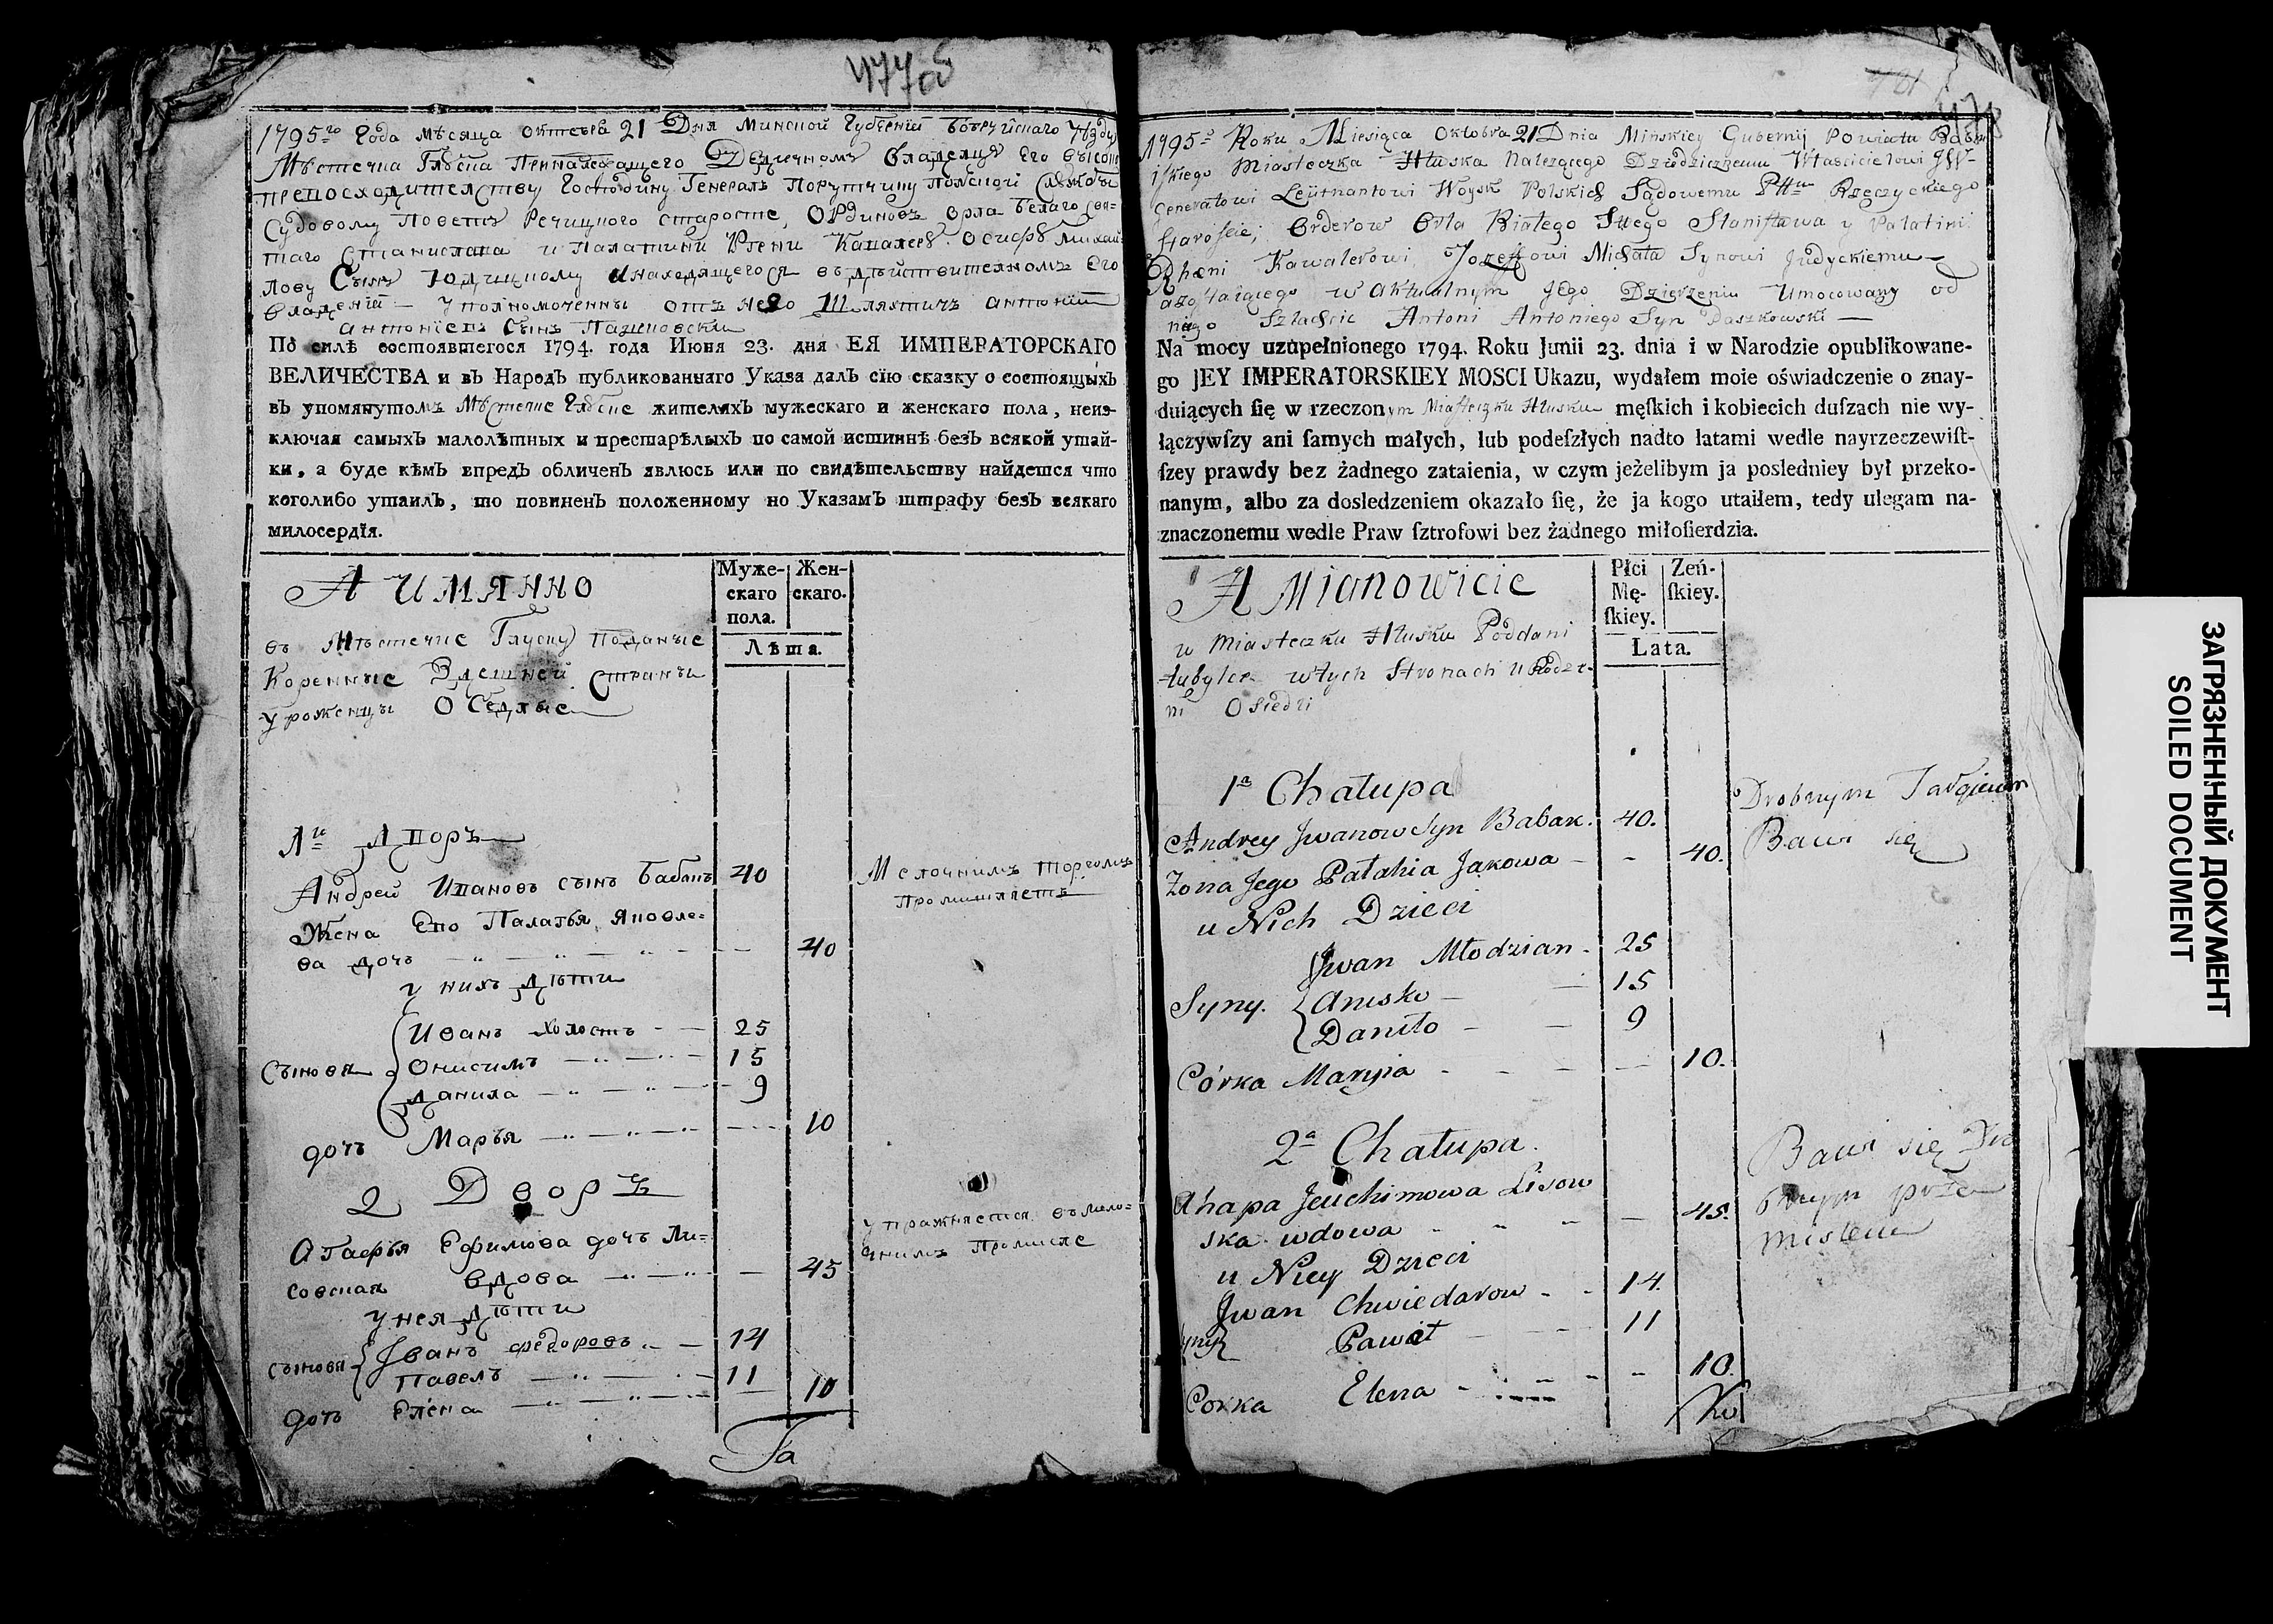 477об
1795го Года мѣсяца октебра 21 Дня Минской Губернїи Бобруйского Уѣзду
Мѣстечка Глуска Принадлежащего Дедичному Владелцу Его высоко
превосходителству Господину Генералъ Порутчику Полской Службы
Судовому Поветъ Речицкого старосте, ОРдиновъ орла белаго свя-
таго Станислава и Палатини Рени Кавалеру Осифу Михай-
лову Сыну Юдицкому а находящегося въ дѣйствителномъ Его
владенїи — уполномоченны отъ него Шляхтичъ антонїй
антонїевъ Сынъ Пашковски
По силѣ состоявшегося 1794. года Июня 23. дня ЕЯ ИМПЕРАТОРСКАГО
ВЕЛИЧЕСТВА и въ Народъ публикованнаго Указа далъ сїю сказку о состоящыхъ
въ упомянутомъ Мѣстечке Глуске жителяхъ мужескаго и женскаго пола, неиз-
ключая самыхъ малолѣтныхъ и престарѣлыхъ по самой истиннѣ безъ всякой утай-
ки, а буде кѣмъ впредь обличенъ явлюсь или по свидѣтельству найдется что
коголибо утаилъ, то повиненъ положенному по Указамъ штрафу безъ всякаго
милосердїя.
А ИМЯННО
Муже-
скаго
пола.
Жен-
скаго.
Лѣта.
въ Мѣстечке Глуску поданые
Коренные Здешней Страны
уроженцы Оседлые
1й дворъ
Андрей Ивановъ сынъ Бабакъ 40
Мелочнимъ торгомъ
промишляетъ
Жена Ево Палагья Яковле-
ва дочь 40
у нихъ дѣти
Иванъ холостъ 25
Сыновя Онисимъ 15
данила 9
дочь Марья 10
2 Дворъ
Агафья Ефимова дочь Ли-
совская вдова 45
упражняется въ мело-
чнимъ Промисле
у нея дѣти
Сыновя Iванъ Федоровъ 14
Павелъ 11
дочь Елена 10
Га
781
478
1795о Roku Miesiąca Oktobra 21 Dnia Mińskiey Gubernij Powiatu Bobru
iskiego Miasteczka Hłuska Należącego Dziedzicznemu Właścicielowi JW
Generałowi Leütnantowi Woysk Polskich Sądowemu Pttu Rzeczyckiego
Starośćie, Orderow Orła Białego Swego Stanisława y Palatini
Rheni Kawalerowi Jozeffowi Michała Synowi Judyckiemu
a zostaiącego w Aktualnym Jego Dzierżeniu Umocowany od
niego Szlachcic Antoni Antoniego Syn Paszkowski —
Na mocy uzupełnionego 1794. Roku Junii 23. dnia i w Narodzie opublikowane-
go JEY IMPERATORSKIEY MOSCI Ukazu, wydałem moie oświadczenie o znay-
duiących ſię w rzeczonym Miasteczku Hłusku męſkich i kobiecich duſzach nie wy-
łączywſzy ani ſamych małych, lub podeſzłych nadto latami wedle nayrzeczewiſt-
ſzey prawdy bez żadnego zataienia, w czym jeżelibym ja posledniey był przeko-
nanym, albo za dosledzeniem okazało ſię, że ja kogo utaiłem, tedy ulegam na-
znaczonemu wedle Praw ſztrofowi bez żadnego miłoſierdzia.
A Mianowicie
Płci
Mę-
ſkiey.
Zeń-
ſkiey.
Lata.
w Miasteczku Hłusku Poddani
tubylce w tych Stronach Urodze-
ni Osiedli
1a Chałupa
Drobnym Targiem
Andrey Jwanow Syn Babak. 40.
Bawi się
Zona Jego Pałahia Jakowa 40.
u Nich Dzieci
Jwan Młodzian 25
Syny. Anisko 15
Daniło 9
Córka Maryia 10.
2a Chałupa.
Bawi się Dro
Ahapa Jeuchimowa Lisow
bnym prze
ska wdowa 45.
mislem
u Niey Dzieci
Jwan Chwiedorow 14.
Syny Paweł 11
Corka Elena 10.
ЗАГРЯЗНЕННЫЙ ДОКУМЕНТ
SOILED DOCUMENT